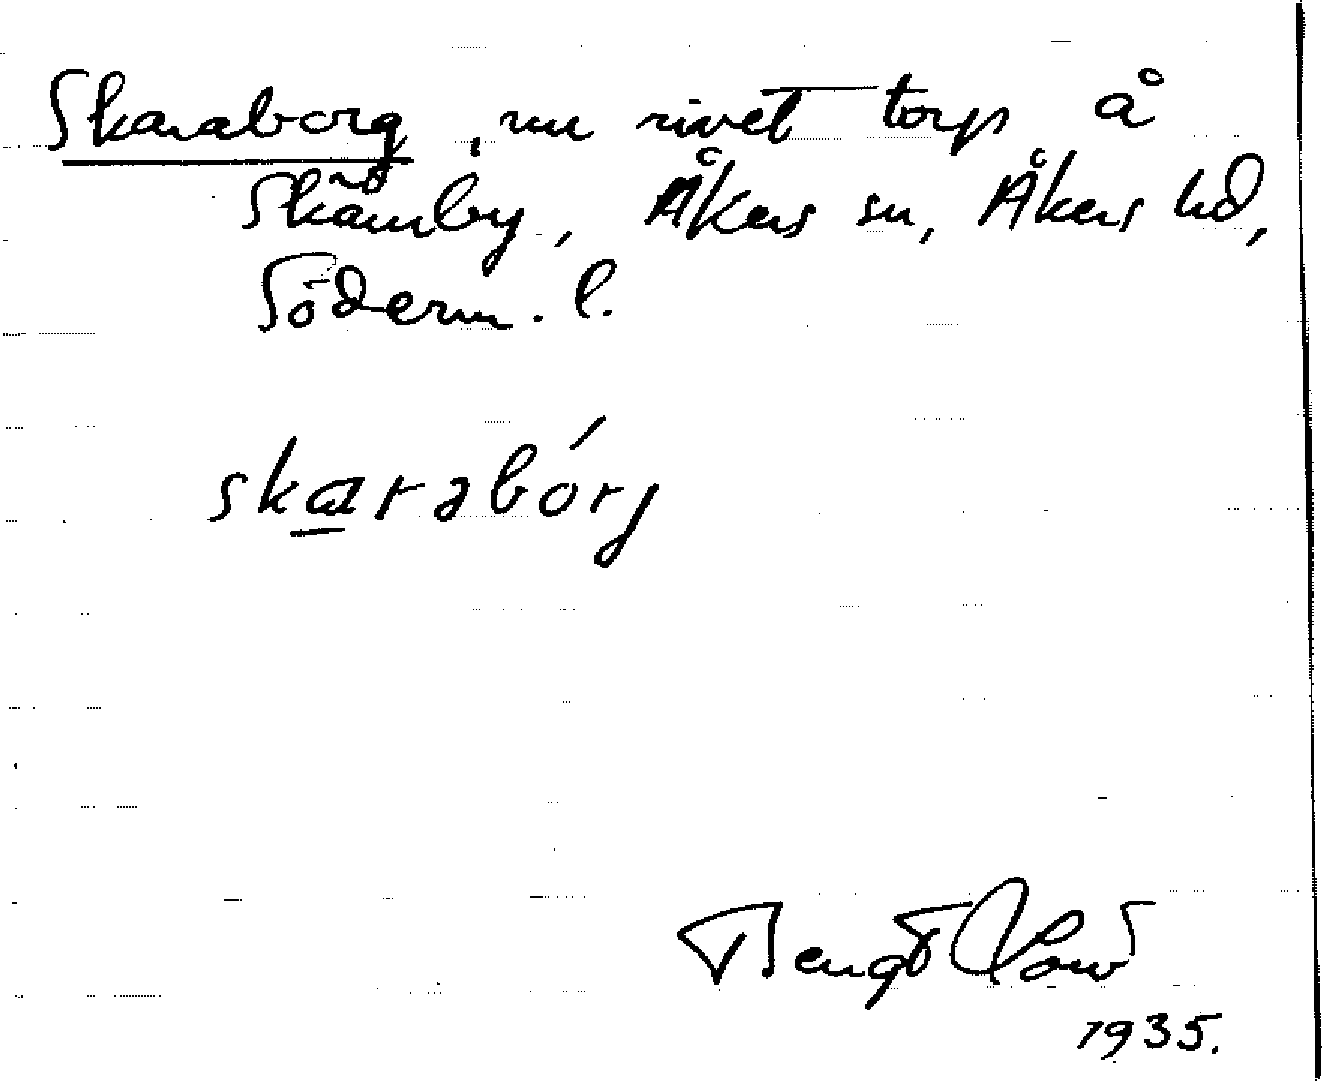 Skaraborg, nu rivet torp å
Skämby, Åkers sn, Åkers hd,
Söderm. l.
skarabórj
Bengt
1935.